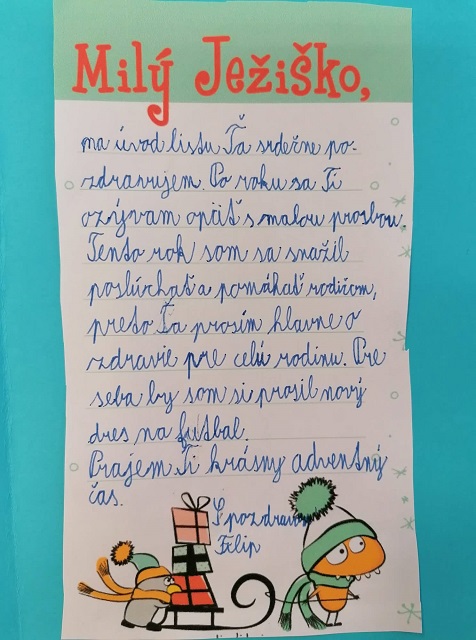 Milý Ježiško,
na úvod listu Ťa srdečne po-
zdravujem. Po roku sa Ti
ozývam opäť s malou prosbou.
Tento rok som sa snažil
poslúchať a pomáhať rodičom,
preto Ťa prosím hlavne o
zdravie pre celú rodinu. Pre
seba by som si prosil nový
dres na futbal.
Prajem Ti krásny adventný
čas.
S pozdravom
Filip